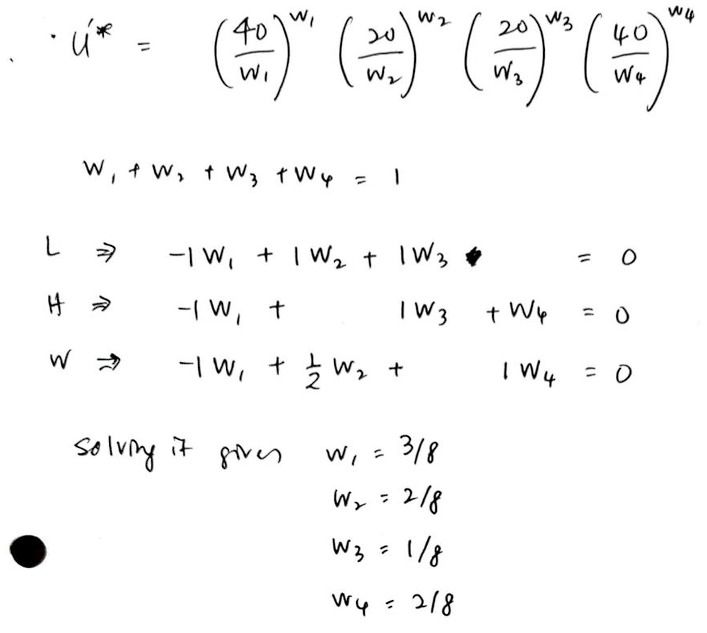 U'* = (40/W₁)^W₁ (20/W₂)^W₂ (20/W₃)^W₃ (40/W₄)^W₄
W₁ + W₂ + W₃ + W₄ = 1
L ⇒ -1W₁ + 1W₂ + 1W₃ = 0
H ⇒ -1W₁ + 1W₃ + W₄ = 0
W ⇒ -1W₁ + 1/2 W₂ + 1W₄ = 0
Solving it gives W₁ = 3/8
W₂ = 2/8
W₃ = 1/8
W₄ = 2/8